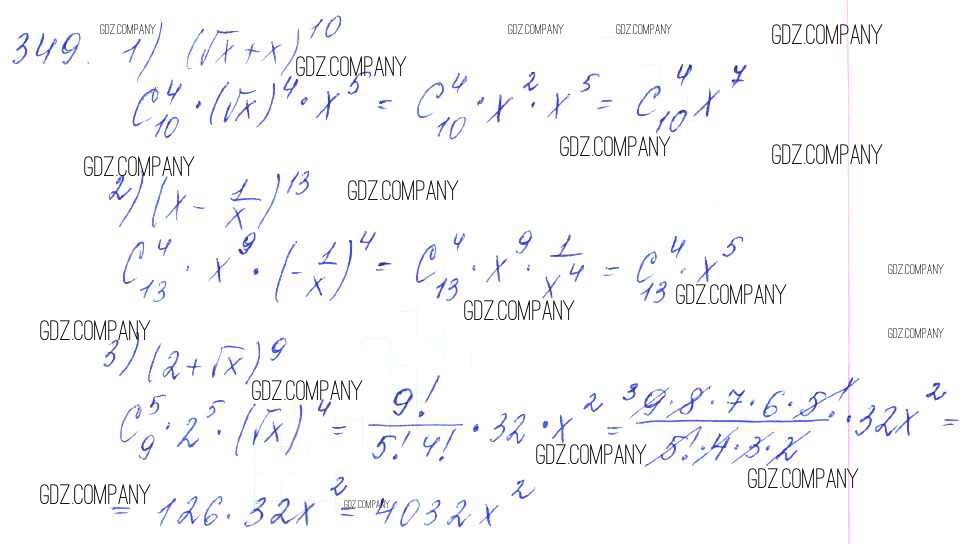 349. 1) (√x + x)^10
C_10^4 · (√x)^4 · x^5 = C_10^4 · x^2 · x^5 = C_10^4 x^7
2) (x - 1/x)^13
C_13^4 · x^9 · (-1/x)^4 = C_13^4 · x^9 · 1/x^4 = C_13^4 · x^5
3) (2 + √x)^9
C_9^5 · 2^5 · (√x)^4 = 9!/(5! 4!) · 32 · x^2 = (9 · 8 · 7 · 6 · 5!)/(5! · 4 · 3 · 2) · 32x^2 =
= 126 · 32x^2 = 4032x^2
GDZ.COMPANY GDZ.COMPANY GDZ.COMPANY GDZ.COMPANY
GDZ.COMPANY
GDZ.COMPANY GDZ.COMPANY
GDZ.COMPANY GDZ.COMPANY
GDZ.COMPANY
GDZ.COMPANY GDZ.COMPANY
GDZ.COMPANY GDZ.COMPANY
GDZ.COMPANY
GDZ.COMPANY
GDZ.COMPANY
GDZ.COMPANY GDZ.COMPANY